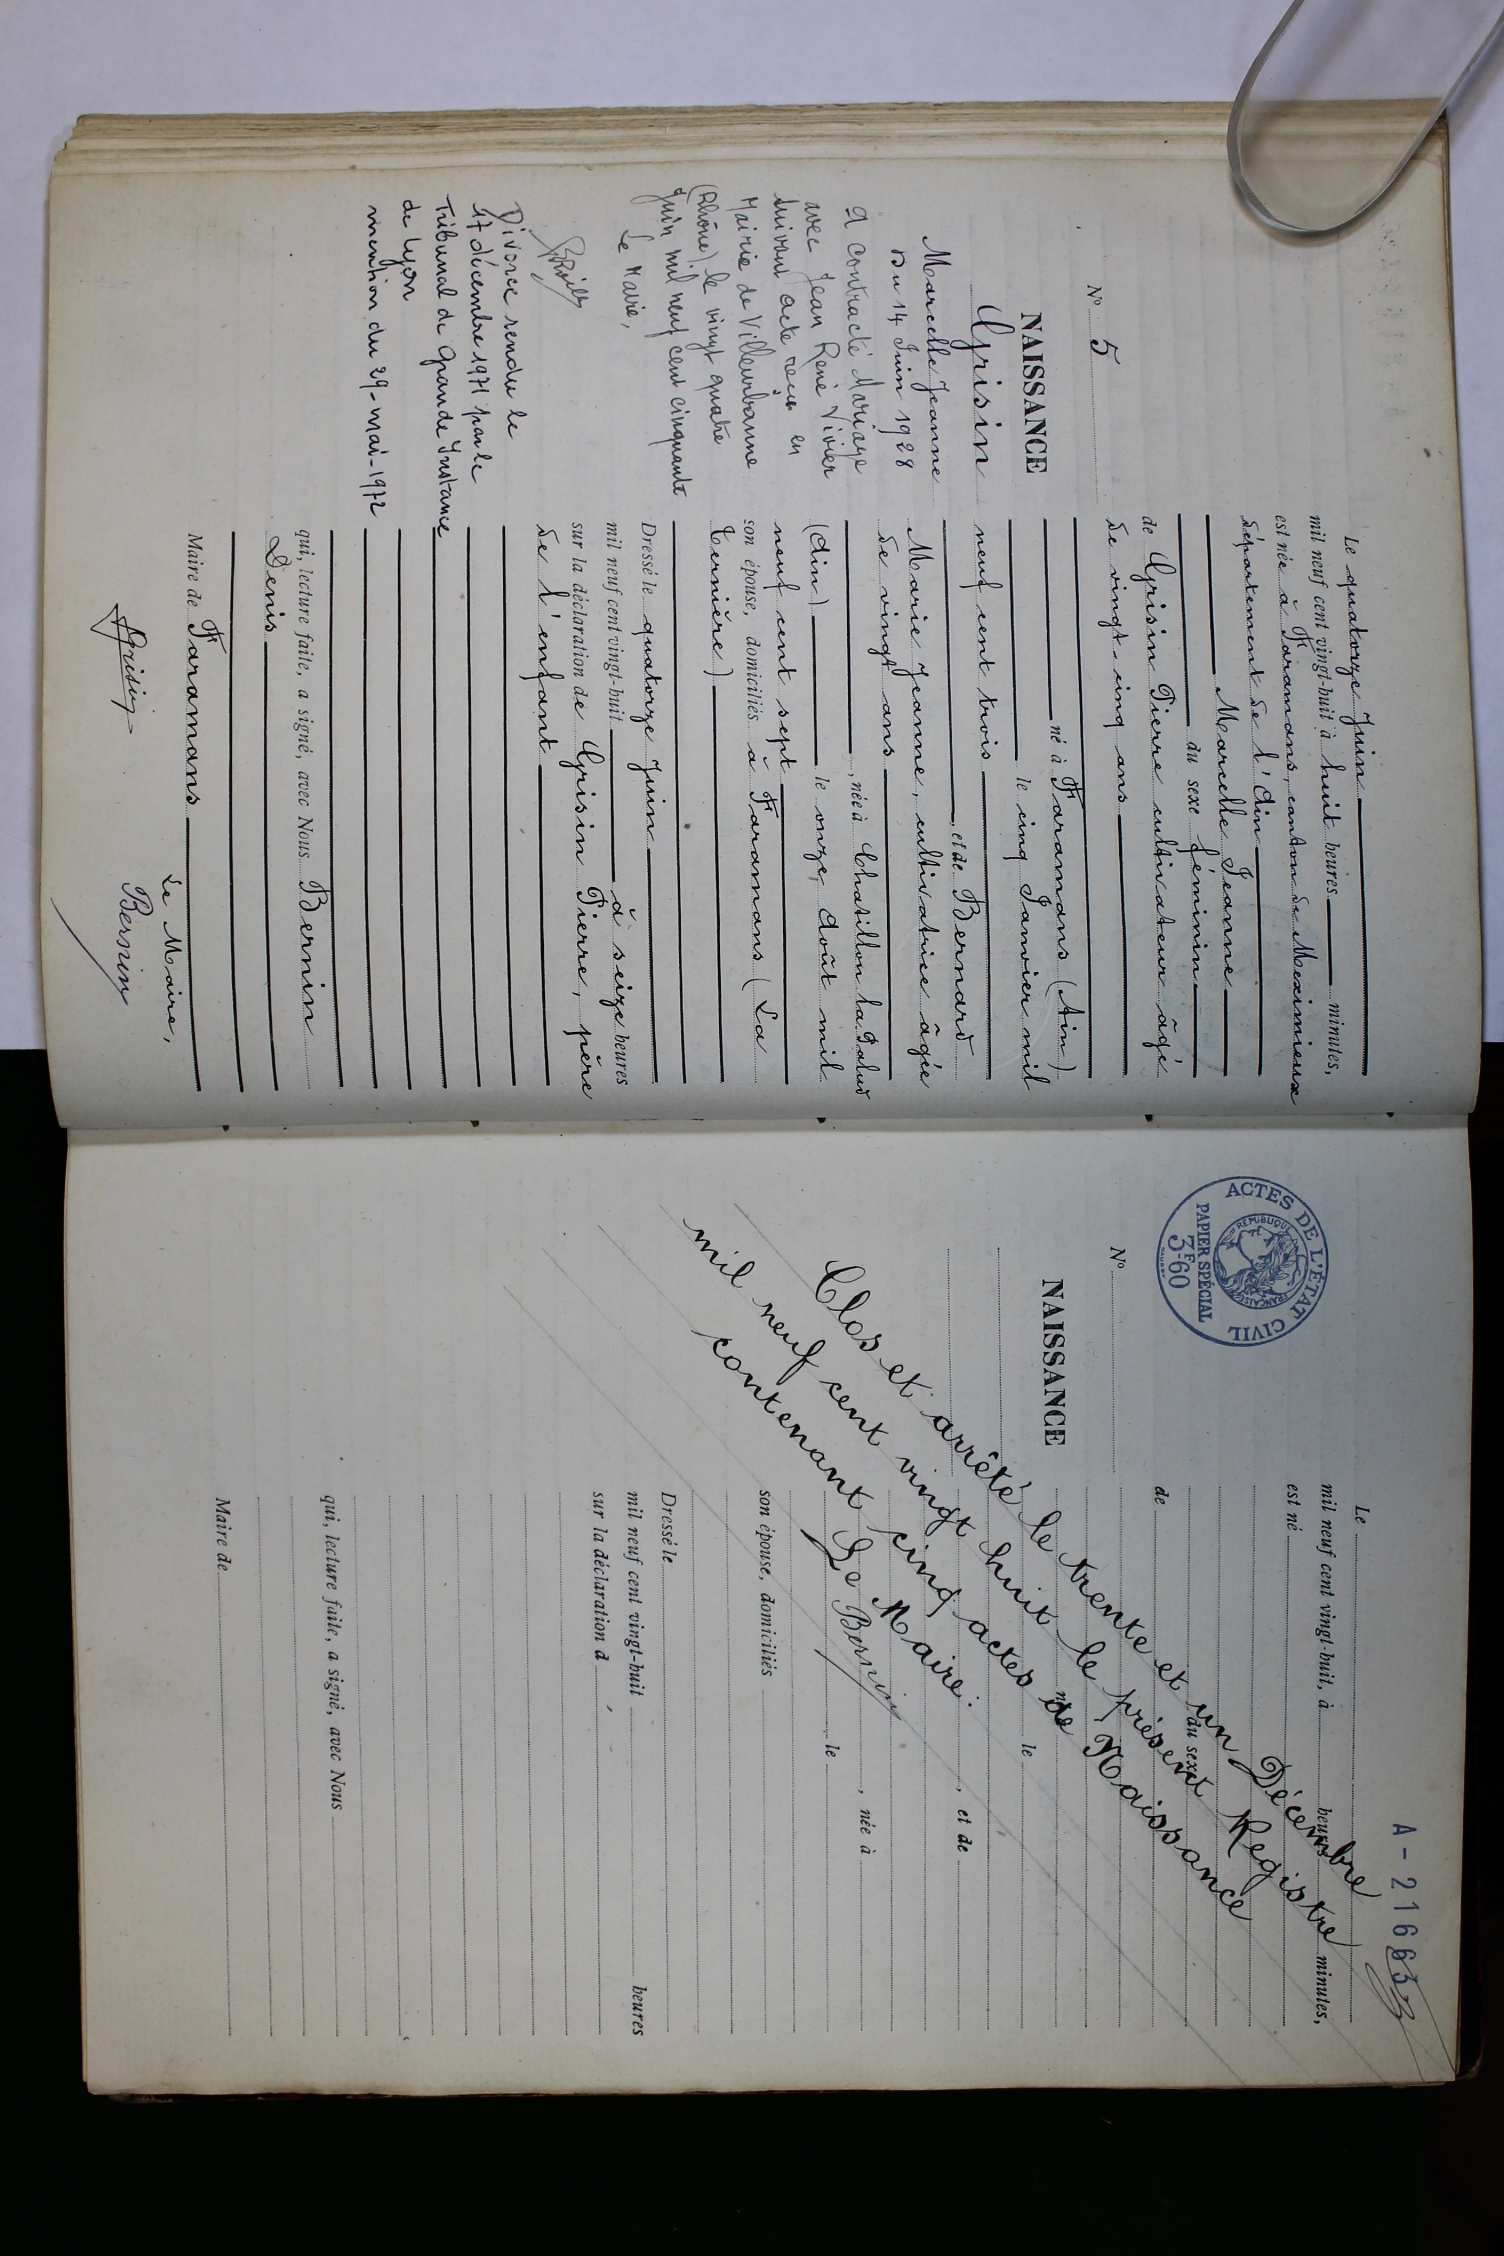 N° 5
NAISSANCE
Grisin
Marcelle Jeanne
Du 14 Juin 1928
A contracté Mariage
avec Jean René Vivier
suivant acte reçu en
Mairie de Villeurbanne
(Rhône) le vingt quatre
Juin mil neuf cent cinquante
Le Maire,
Divorce rendu le
17 décembre 1971 par le
Tribunal de Grande Instance
de Lyon
mention du 29-mai-1972
Le quatorze Juin
mil neuf cent vingt-huit à huit heures minutes,
est née à Faramans, canton de Meximieux
département de l'Ain
Marcelle Jeanne
du sexe féminin
de Grisin Pierre cultivateur âgé
de vingt-cinq ans
né à Faramans (Ain)
le cinq Janvier mil
neuf cent trois
, et de Bernard
Marie Jeanne, cultivatrice âgée
de vingt ans
, née à Chatillon la Palud
(Ain) le onze Août mil
neuf cent sept
son épouse, domiciliés à Faramans (La
Ternière)
Dressé le quatorze Juin
mil neuf cent vingt-huit à seize heures
sur la déclaration de Grisin Pierre, père
de l'enfant
qui, lecture faite, a signé, avec Nous Bernin
Denis
Maire de Faramans
Le Maire,
Grisin
Bernin
A-21663
ACTES DE L'ÉTAT CIVIL
RÉPUBLIQUE FRANÇAISE
PAPIER SPÉCIAL
3F60
N°
NAISSANCE
Le
mil neuf cent vingt-huit, à heures minutes,
est né
du sexe
de
né
le
, et de
, née à
le
son épouse, domiciliés
Dressé le
mil neuf cent vingt-huit heures
sur la déclaration d
qui, lecture faite, a signé, avec Nous
Maire de
Clos et arrêté le trente et un Décembre
mil neuf cent vingt huit le présent Registre
contenant cinq actes de Naissance
Le Maire:
Bernin